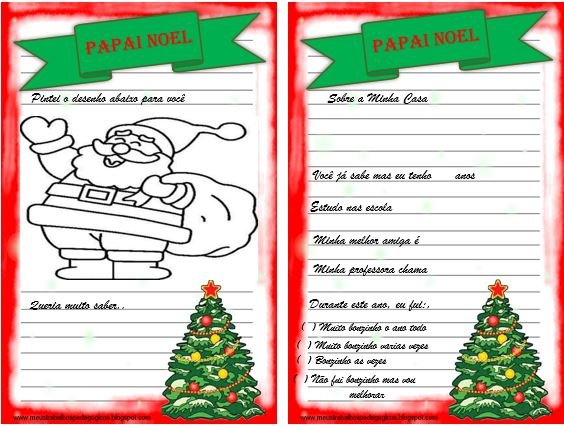 PAPAI NOEL
Pintei o desenho abaixo para você
Queria muito saber..
www.meustrabalhospedagogicos.blogspot.com
PAPAI NOEL
Sobre a Minha Casa
Você já sabe mas eu tenho anos
Estudo nas escola
Minha melhor amiga é
Minha professora chama
Durante este ano, eu fui:,
( ) Muito bonzinho o ano todo
( ) Muito bonzinho varias vezes
( ) Bonzinho as vezes
( ) Não fui bonzinho mas vou
melhorar
www.meustrabalhospedagogicos.blogspot.com